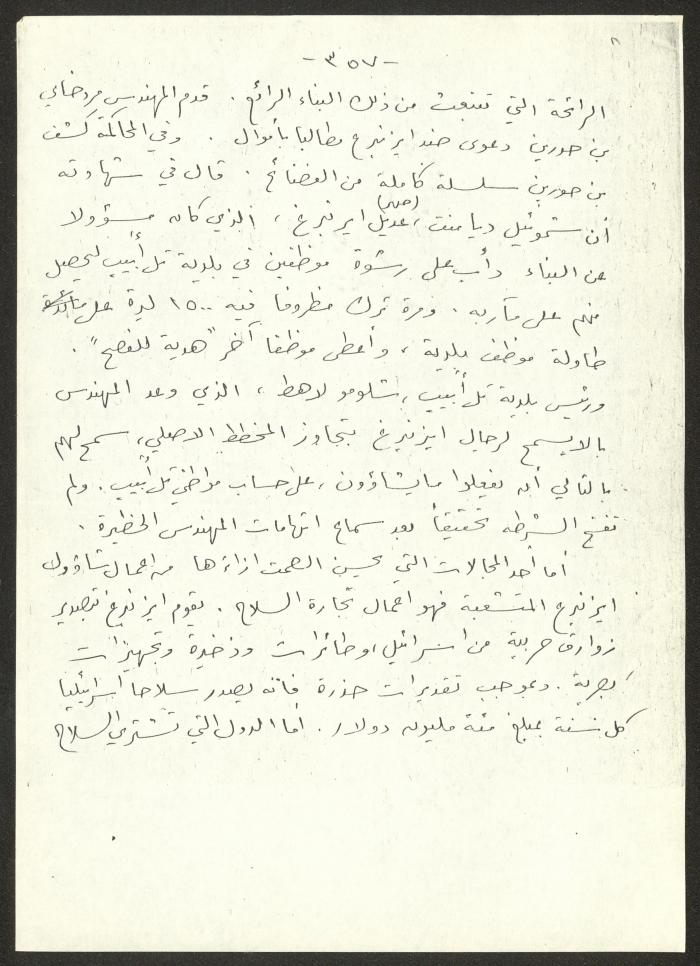 -٣٥٧-
الرائحة التي تنبعث من ذلك البناء الرائع. قدم المهندس مردخاي
بن حورين دعوى ضد ايزنبرغ مطالبا بأموال. وفي المحاكمة كشف
بن حورين سلسلة كاملة من الفضائح. قال في شهادته
أن شموئيل ديامنت، عديل (صهر) ايزنبرغ، الذي كان مسؤولا
عن البناء دأب على رشوة موظفين في بلدية تل أبيب ليحصل
منهم على مآربه. ومرة ترك مظروفا فيه ١٥٠٠ ليرة على
طاولة موظف بلدية، وأعطى موظفا آخر "هدية للفصح".
ورئيس بلدية تل أبيب، شلومو لاهط، الذي وعد المهندس
بالا يسمح لرجال ايزنبرغ بتجاوز المخطط الاصلي، سمح لهم
بالتالي أن يفعلوا ما يشاؤون، على حساب مواطني تل أبيب. ولم
تفتح الشرطه تحقيقاً بعد سماع اتهامات المهندس الخطيرة.
أما أحد المجالات التي يحسن الصمت ازاءها من اعمال شاؤول
ايزنبرغ المتشعبة فهو اعمال تجارة السلاح. يقوم ايزنبرغ بتصدير
زوارق حربية من اسرائيل، وطائرات وذخيرة وتجهيزات
بصرية. وبموجب تقديرات حذرة فانه يصدر سلاحا اسرائيليا
كل سنة بمبلغ مئة مليون دولار. أما الدول التي تشتري السلاح